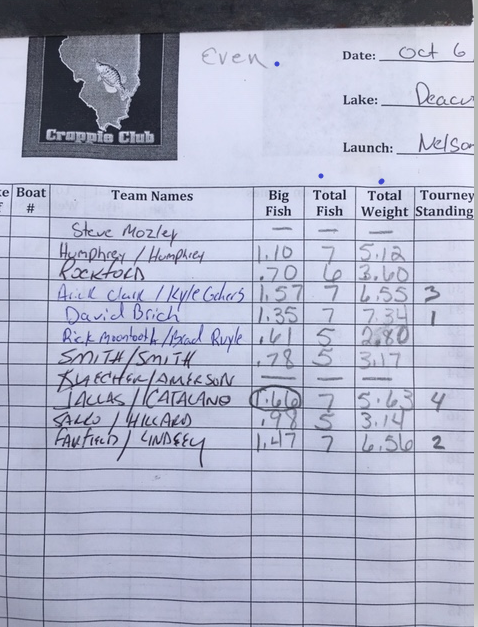 Even.
Date: Oct 6
Crappie Club
Lake:
Launch: Nelson
Boat # Team Names Big Fish Total Fish Total Weight Tourney Standing
Steve Mozley — — —
Humphrey / Humphrey 1.10 7 5.12
ROCKFORD .70 6 3.60
Arick Clark / Kyle 1.57 7 6.55 3
David Brich 1.35 7 7.34 1
Rick / Brad Ruyle .61 5 2.80
SMITH/SMITH .78 5 3.17
/AMERSON — — —
JALLAS/CATALANO 1.66 7 5.63 4
/ HILLARD .98 5 3.14
FAIRFIELD/ LINDSEY 1.47 7 6.56 2